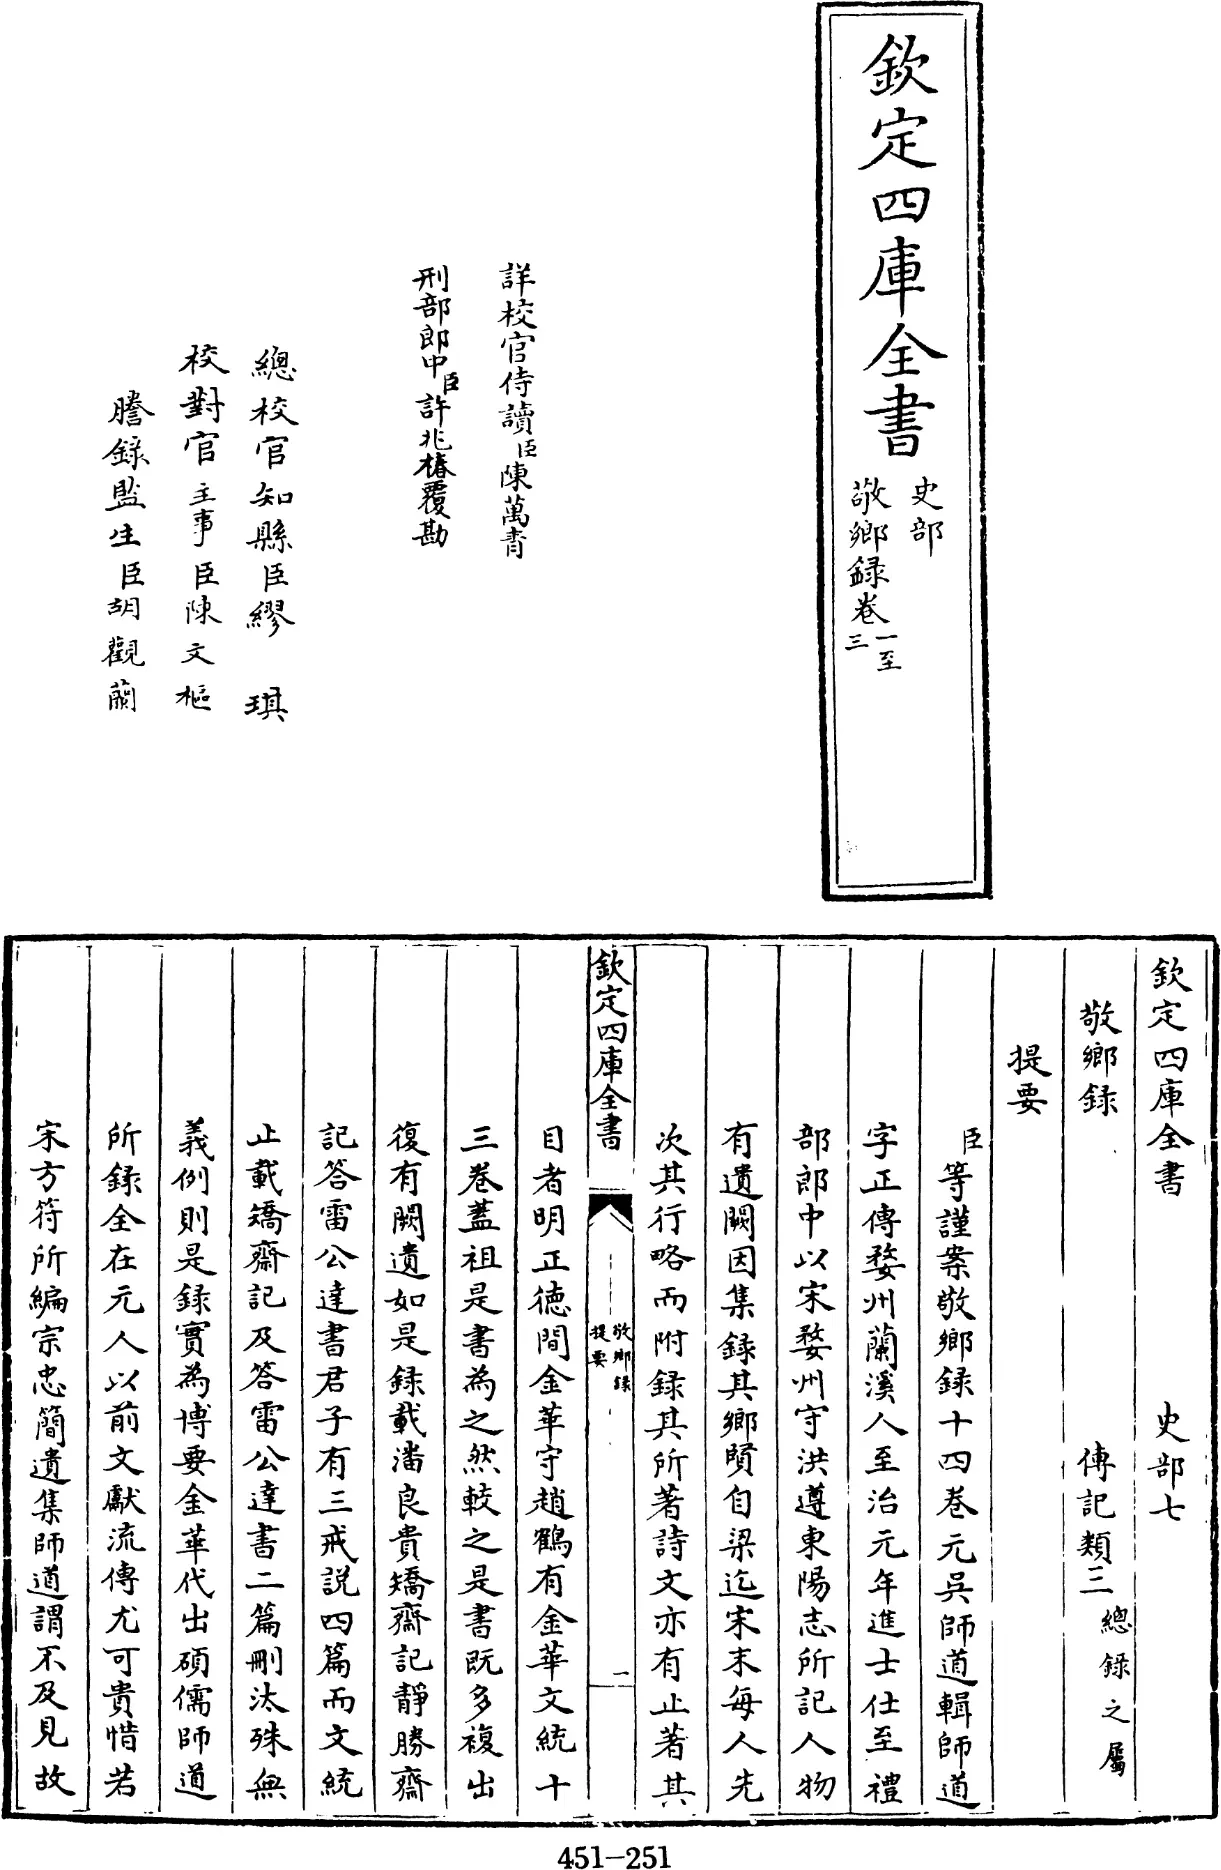 欽定四庫全書
史部
敬鄉録卷一至三
詳校官侍讀臣陳萬青
刑部郎中臣許兆椿覆勘
總校官知縣臣繆琪
校對官主事臣陳文樞
謄錄監生臣胡觀蘭
欽定四庫全書 史部七
敬鄉録 傳記類三 總錄之屬
提要
臣等謹案敬鄉録十四卷元吳師道輯師道
字正傳婺州蘭溪人至治元年進士仕至禮
部郎中以宋婺州守洪遵東陽志所記人物
有遺闕因集録其鄉賢自梁迄宋末每人先
次其行略而附録其所著詩文亦有止著其
欽定四庫全書
敬鄉録
提要
一
目者明正德間金華守趙鶴有金華文統十
三卷蓋祖是書為之然較之是書既多複出
復有闕遺如是録載潘良貴矯齋記靜勝齋
記答雷公達書君子有三戒説四篇而文統
止載矯齋記及答雷公達書二篇刪汰殊無
義例則是録實為博要金華代出碩儒師道
所録全在元人以前文獻流傳尤可貴惜若
宋方符所編宗忠簡遺集師道謂不及見故
451-251